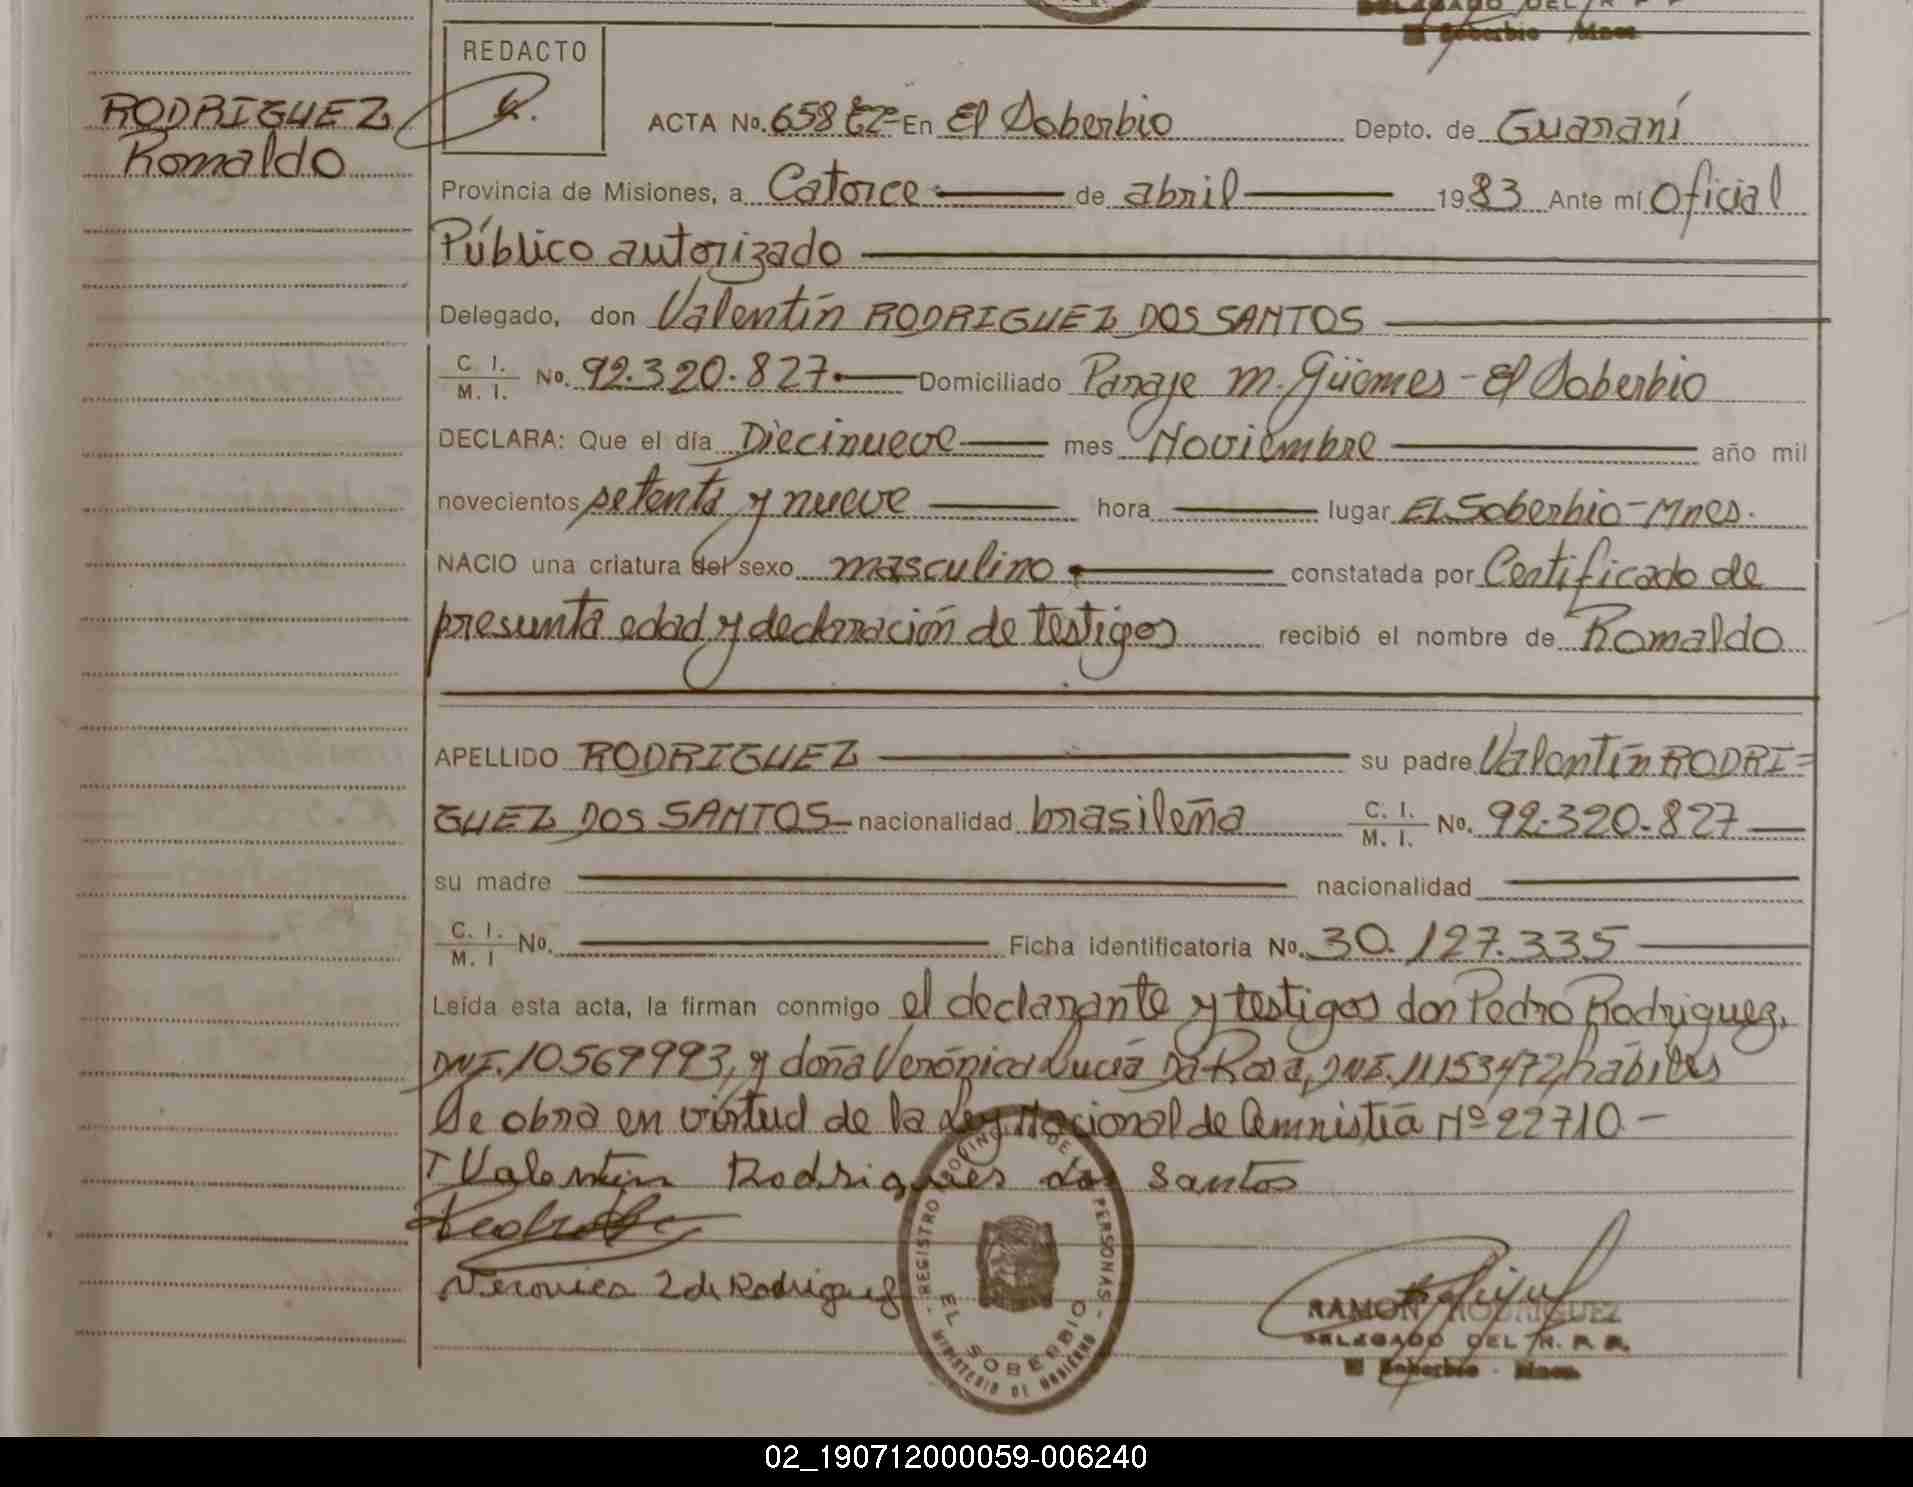 DELEGADO DEL R. P. P.
El Soberbio Mnes.
REDACTO
RODRIGUEZ
Romaldo
ACTA No. 658 En El Soberbio Depto. de Guaraní
Provincia de Misiones, a Catorce de abril 1983 Ante mí Oficial
Público autorizado
Delegado, don Valentín RODRIGUEZ DOS SANTOS
C. I. / M. I. No. 92.320.827 Domiciliado Paraje M. Güemes - El Soberbio
DECLARA: Que el día Diecinueve mes Noviembre año mil
novecientos setenta y nueve hora lugar El Soberbio - Mnes.
NACIO una criatura del sexo masculino constatada por Certificado de
presunta edad y declaración de testigos recibió el nombre de Romaldo
APELLIDO RODRIGUEZ su padre Valentín RODRI=
GUEZ DOS SANTOS nacionalidad brasileña C. I. / M. I. No. 92.320.827
su madre nacionalidad
C. I. / M. I No. Ficha identificatoria No. 30.127.335
Leída esta acta, la firman conmigo el declarante y testigos don Pedro Rodriguez,
DNI. 10569993, y doña Verónica Lucía Da Rosa, DNI. 11153472, hábiles
Se obra en virtud de la Ley Nacional de Amnistía Nº 22710.-
Valentin Rodrigues dos Santos
Veronica L de Rodriguez
REGISTRO PROVINCIAL DE PERSONAS
EL SOBERBIO
MINISTERIO DE GOBIERNO
RAMON RODRIGUEZ
DELEGADO DEL R. P. P.
El Soberbio - Mnes.
02_190712000059-006240